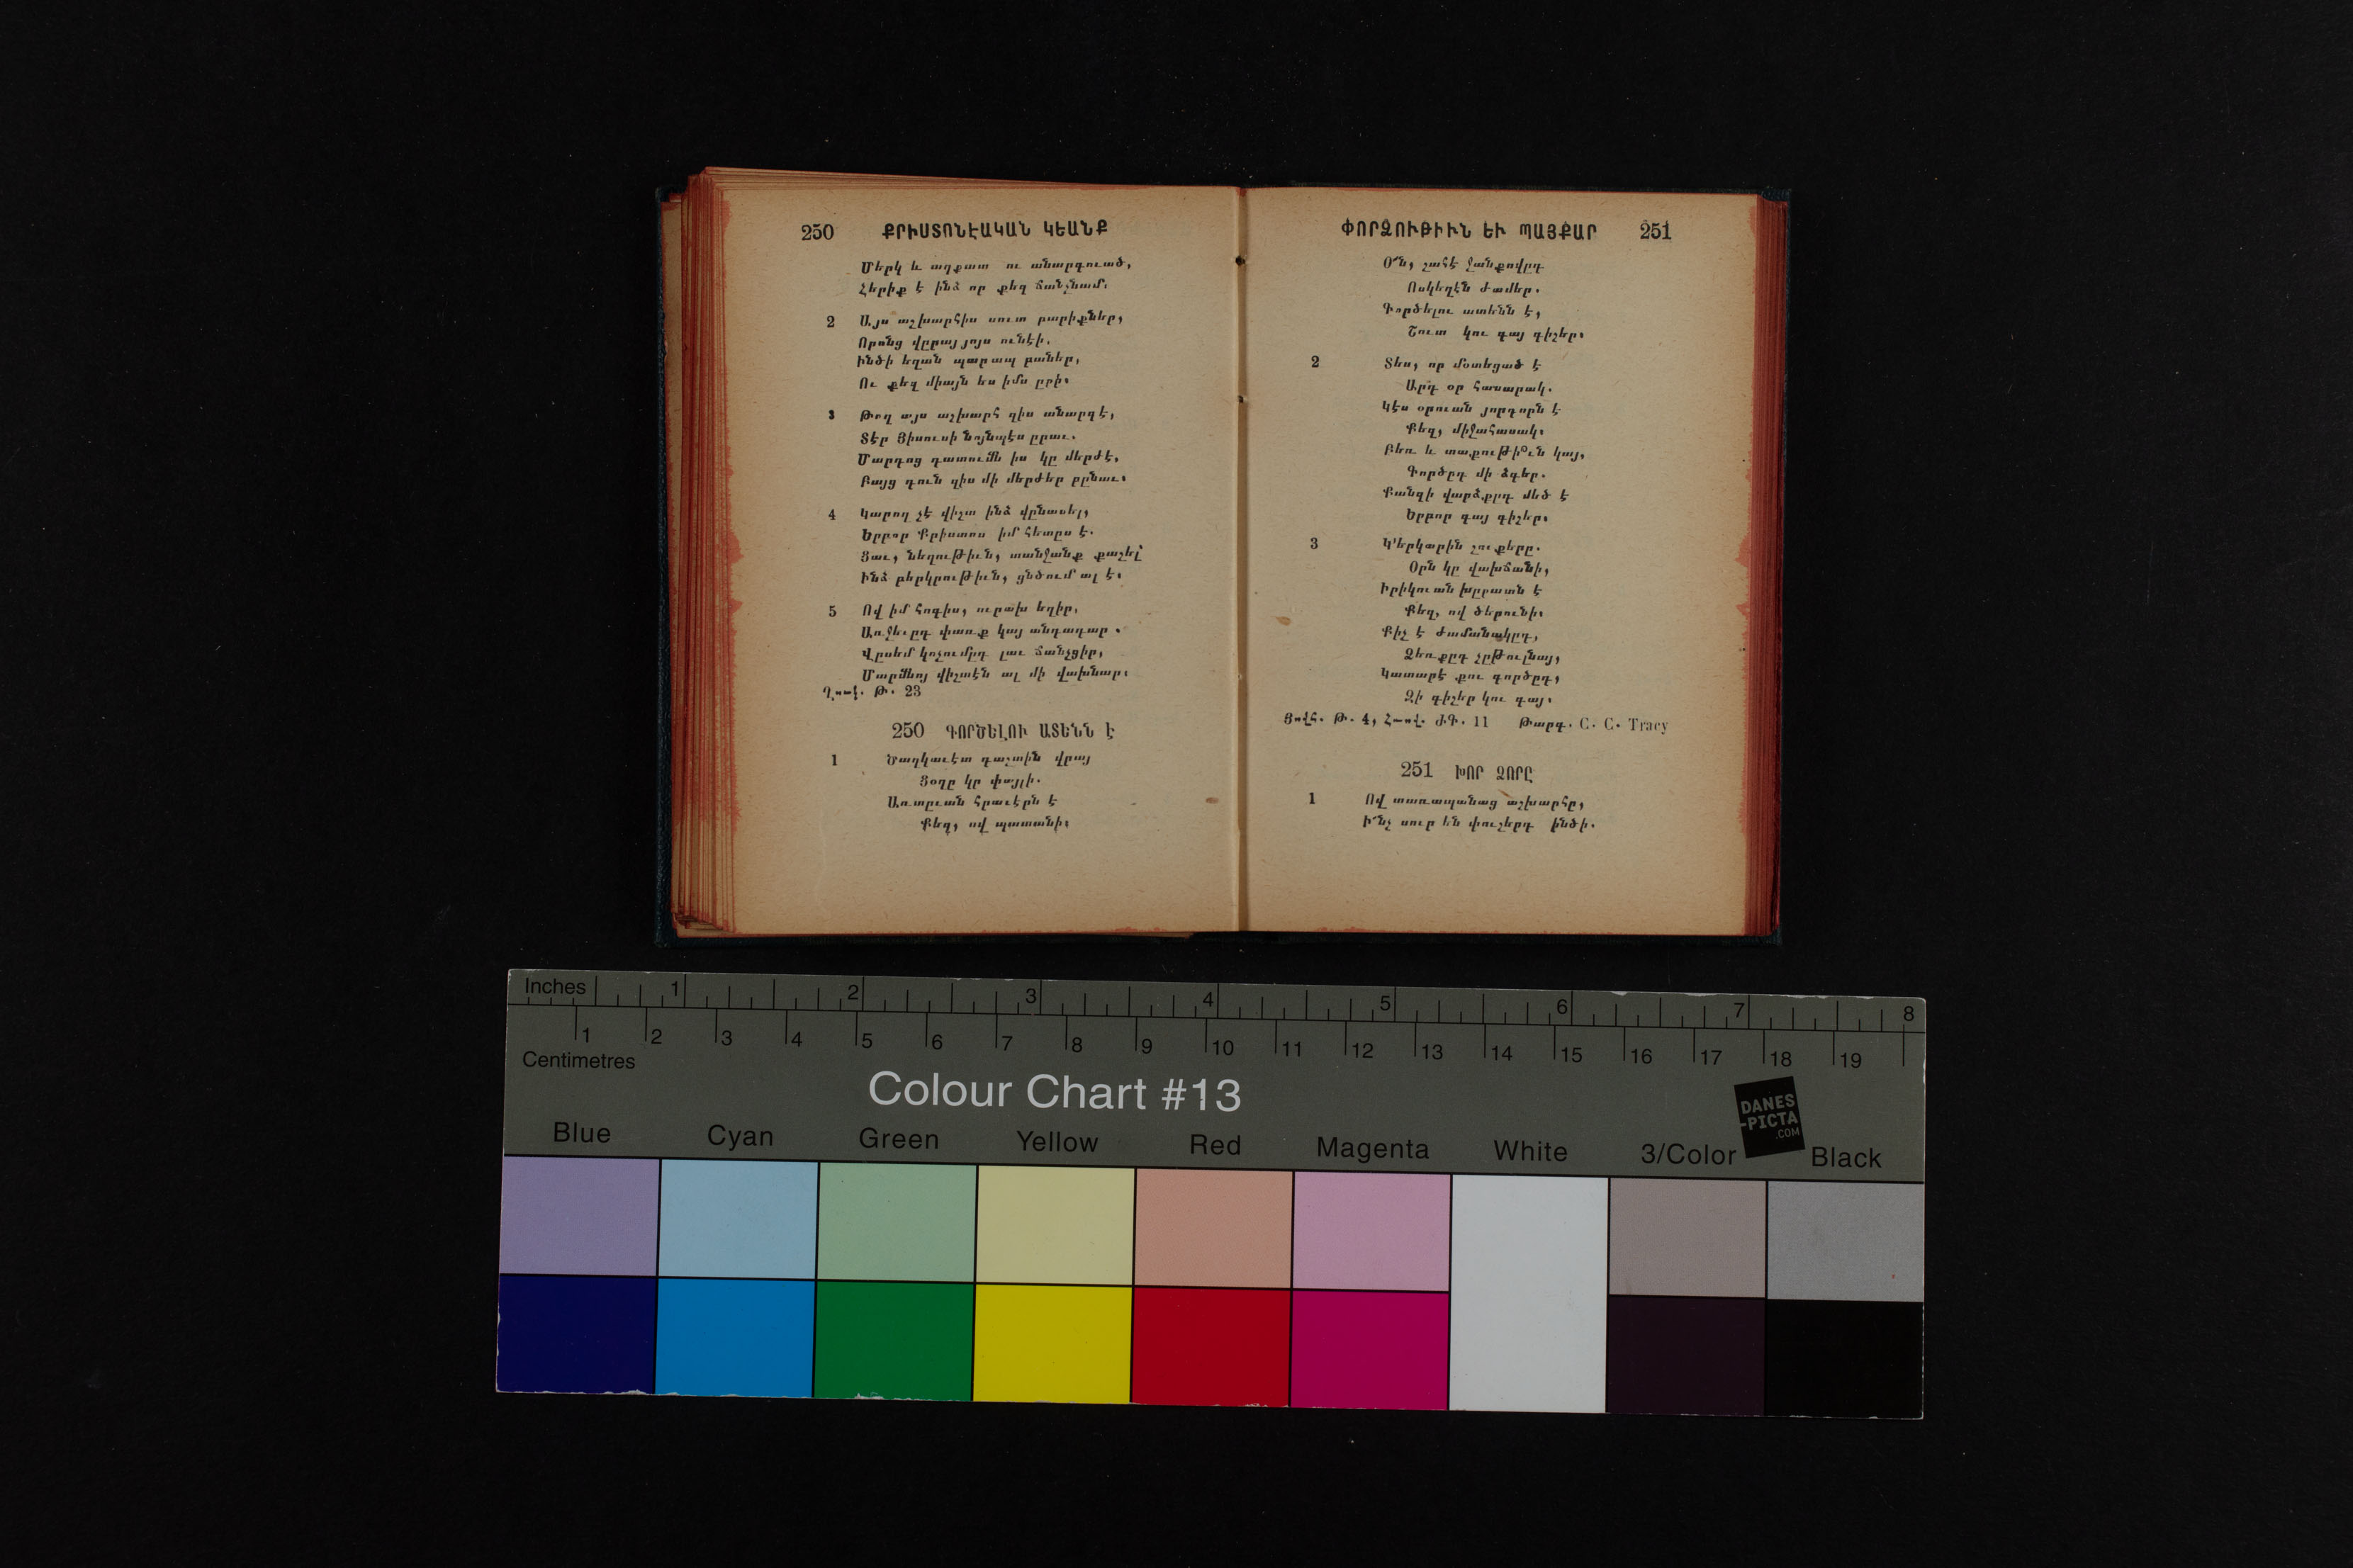 250 ՔՐԻՍՏՈՆԷԱԿԱՆ ԿԵԱՆՔ
Մերկ և աղքատ ու անարգուած,
Հերիք է ինձ որ քեզ ճանչնամ։
2 Այս աշխարհիս սուտ բարիքներ,
Որոնց վըրայ յոյս ունէի,
Ինծի եղան պարապ բաներ,
Ու քեզ միայն ես իմս ըրի։
3 Թող այս աշխարհ զիս անարգէ,
Տէր Յիսուսի նոյնպէս ըրաւ.
Մարդոց դատումն իս կը մերժէ,
Բայց դուն զիս մի մերժեր բընաւ։
4 Կարող չէ վիշտ ինձ վընասել,
Երբոր Քրիստոս իմ հետըս է.
Ցաւ, նեղութիւն, տանջանք քաշել՝
Ինձ բերկրութիւն, ցնծում ալ է։
5 Ով իմ հոգիս, ուրախ եղիր,
Առջեւըդ փառք կայ անդադար.
Վըսեմ կոչումըդ լաւ ճանչցիր,
Մարմնոյ վիշտէն ալ մի վախնար։
Ղուկ. Թ. 23
250 ԳՈՐԾԵԼՈՒ ԱՏԵՆՆ է
1 Ծաղկաւէտ դաշտին վրայ
Ցօղը կը փայլի.
Առտըւան հրաւէրն է
Քեզ, ով պատանի։
ՓՈՐՁՈՒԹԻՒՆ ԵՒ ՊԱՅՔԱՐ 251
Օ՛ն, շահէ ջանքովըդ
Ոսկեղէն ժամեր.
Գործելու ատենն է,
Շուտ կու գայ գիշեր։
2 Տես, որ մօտեցած է
Արդ օր հասարակ.
Կէս օրուան յորդորն է
Քեզ, միջահասակ։
Բեռ և տաքութի՞ւն կայ,
Գործըդ մի ձգեր.
Քանզի վարձքըդ մեծ է
Երբոր գայ գիշեր։
3 Կ՚երկարին շուքերը.
Օրն կը վախճանի,
Իրիկուան խըրատն է
Քեզ, ով ծերունի։
Քիչ է ժամանակըդ,
Ձեռքըդ չըթուլնայ,
Կատարէ քու գործըդ,
Զի գիշեր կու գայ։
Յովհ. Թ. 4, Հռով. ԺԳ. 11 Թարգ. C. C. Tracy
251 ԽՈՐ ՁՈՐԸ
1 Ով տառապանաց աշխարհը,
Ի՜նչ սուր են փուշերդ ինծի.
Inches 1 2 3 4 5 6 7 8
1 2 3 4 5 6 7 8 9 10 11 12 13 14 15 16 17 18 19
Centimetres
Colour Chart #13
DANES
-PICTA
.COM
Blue Cyan Green Yellow Red Magenta White 3/Color Black